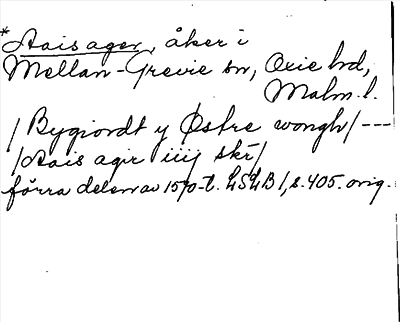 * Aais ager, åker i
Mellan-Grevie sn, Oxie hd,
Malm. l.
/ Bygiordt y Østre wongh/ ---
/Aais agir iiij skr/
förra delen av 1570-t. LSLB 1, s. 405. orig.